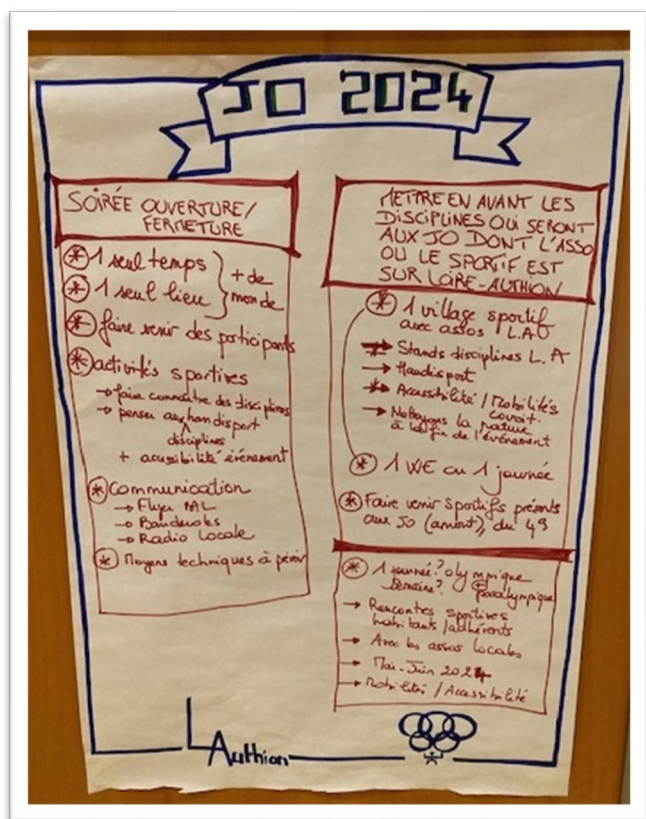 JO 2024
SOIRÉE OUVERTURE/
FERMETURE
* 1 seul temps
* 1 seul lieu
} + de
monde
* faire venir des participants
* activités sportives
→ faire connaître des disciplines
→ penser aux handisport
disciplines
+ accessibilité événement
* Communication
→ Flyer
→ Banderoles
→ Radio Locale
* Moyens techniques à prévoir
METTRE EN AVANT LES
DISCIPLINES QUI SERONT
AUX JO DONT L'ASSO
OU LE SPORTIF EST
SUR LOIRE-AUTHION
* 1 village sportif
avec assos
→ Stands disciplines L.A
→ Handisport
→ Accessibilité / Mobilités
→ Nettoyons la nature
à la fin de l'événement
* 1 WE ou 1 journée
* Faire venir sportifs présents
aux JO (amont), du 49
* 1 journée? olympique
semaine? + paralympique
→ Rencontres sportives
habitants / adhérents
→ Avec les assos locales
→ Mai-Juin 2024
→ Mobilités / Accessibilité
L Authion